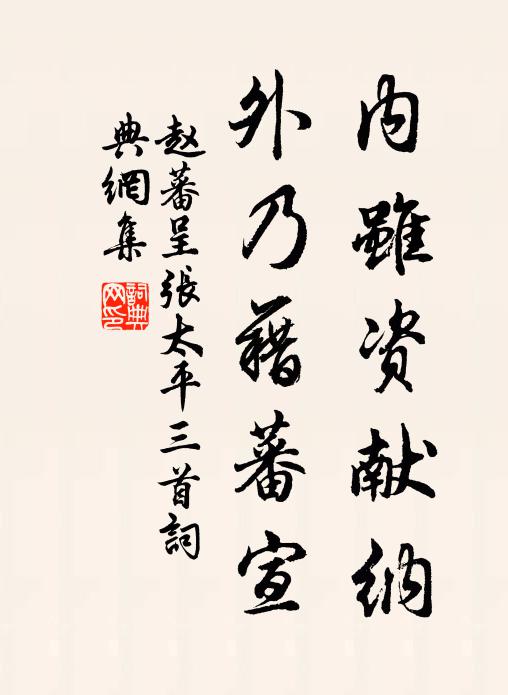 内雖资献纳
外乃藉蕃宣
赵蕃呈張太平三首詞
典網集
詞典网印